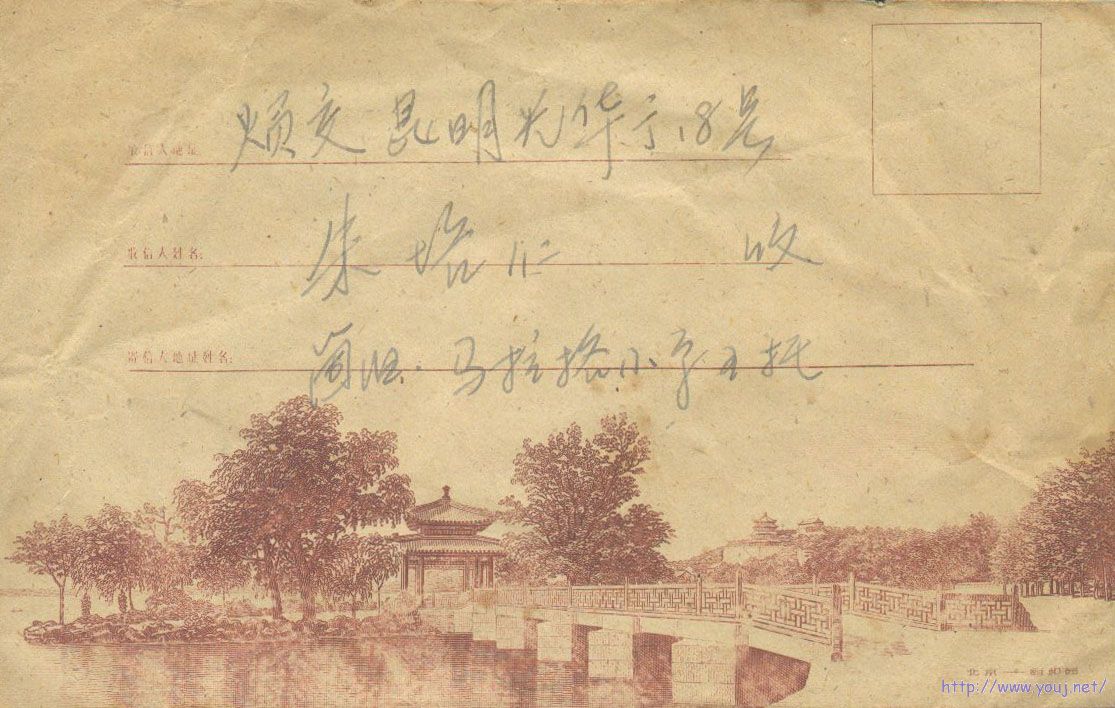 收信人地址: 烦交 昆明光华于18号
收信人姓名: 朱培仁 收
寄信人地址姓名: 马拉格小学王托
http://www.youj.net/